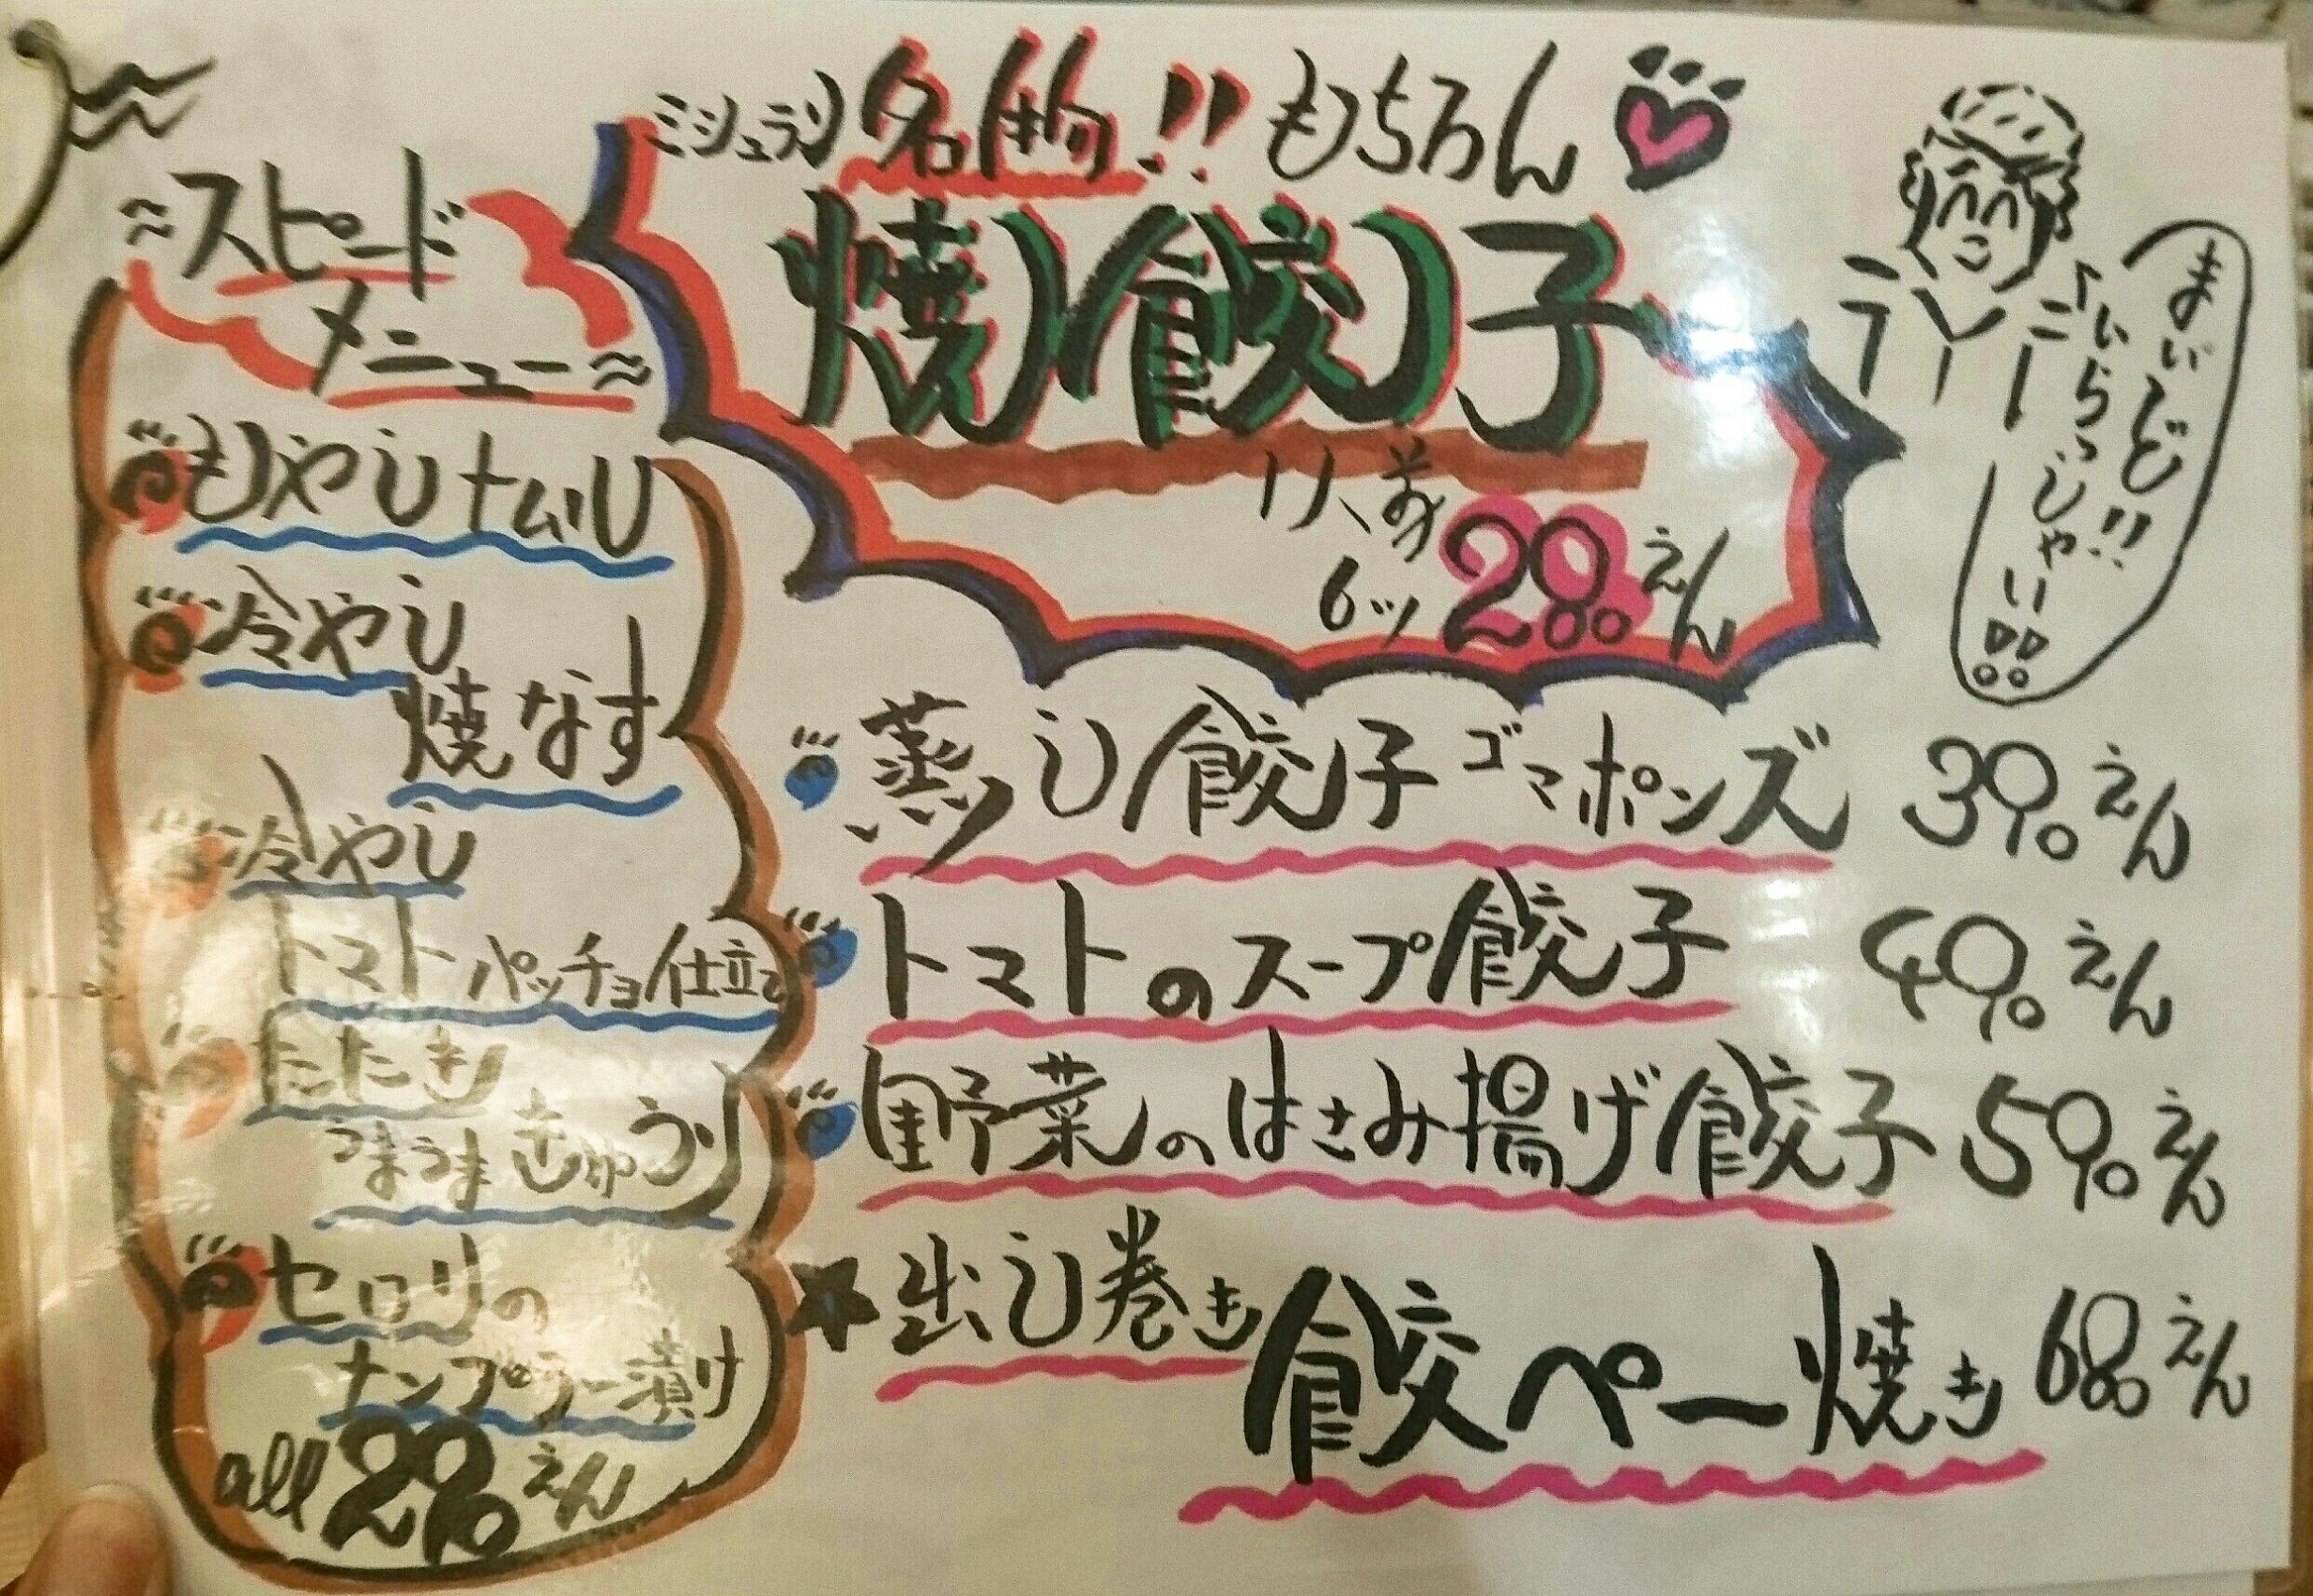 ミシュラン名物!!もちろん
焼餃子
1人前
6ッ 280えん
まいど!!
へいらっしゃい!!
~スピード
メニュー~
もやしナムル
冷やし
焼なす
冷やし
トマトパッチョ仕立て
たたき
うまうまきゅうり
セロリの
ナンプラー漬け
all 290えん
蒸し餃子ゴマポンズ 390えん
トマトのスープ餃子 490えん
野菜のはさみ揚げ餃子 590えん
★出し巻き
餃ペー焼き 680えん